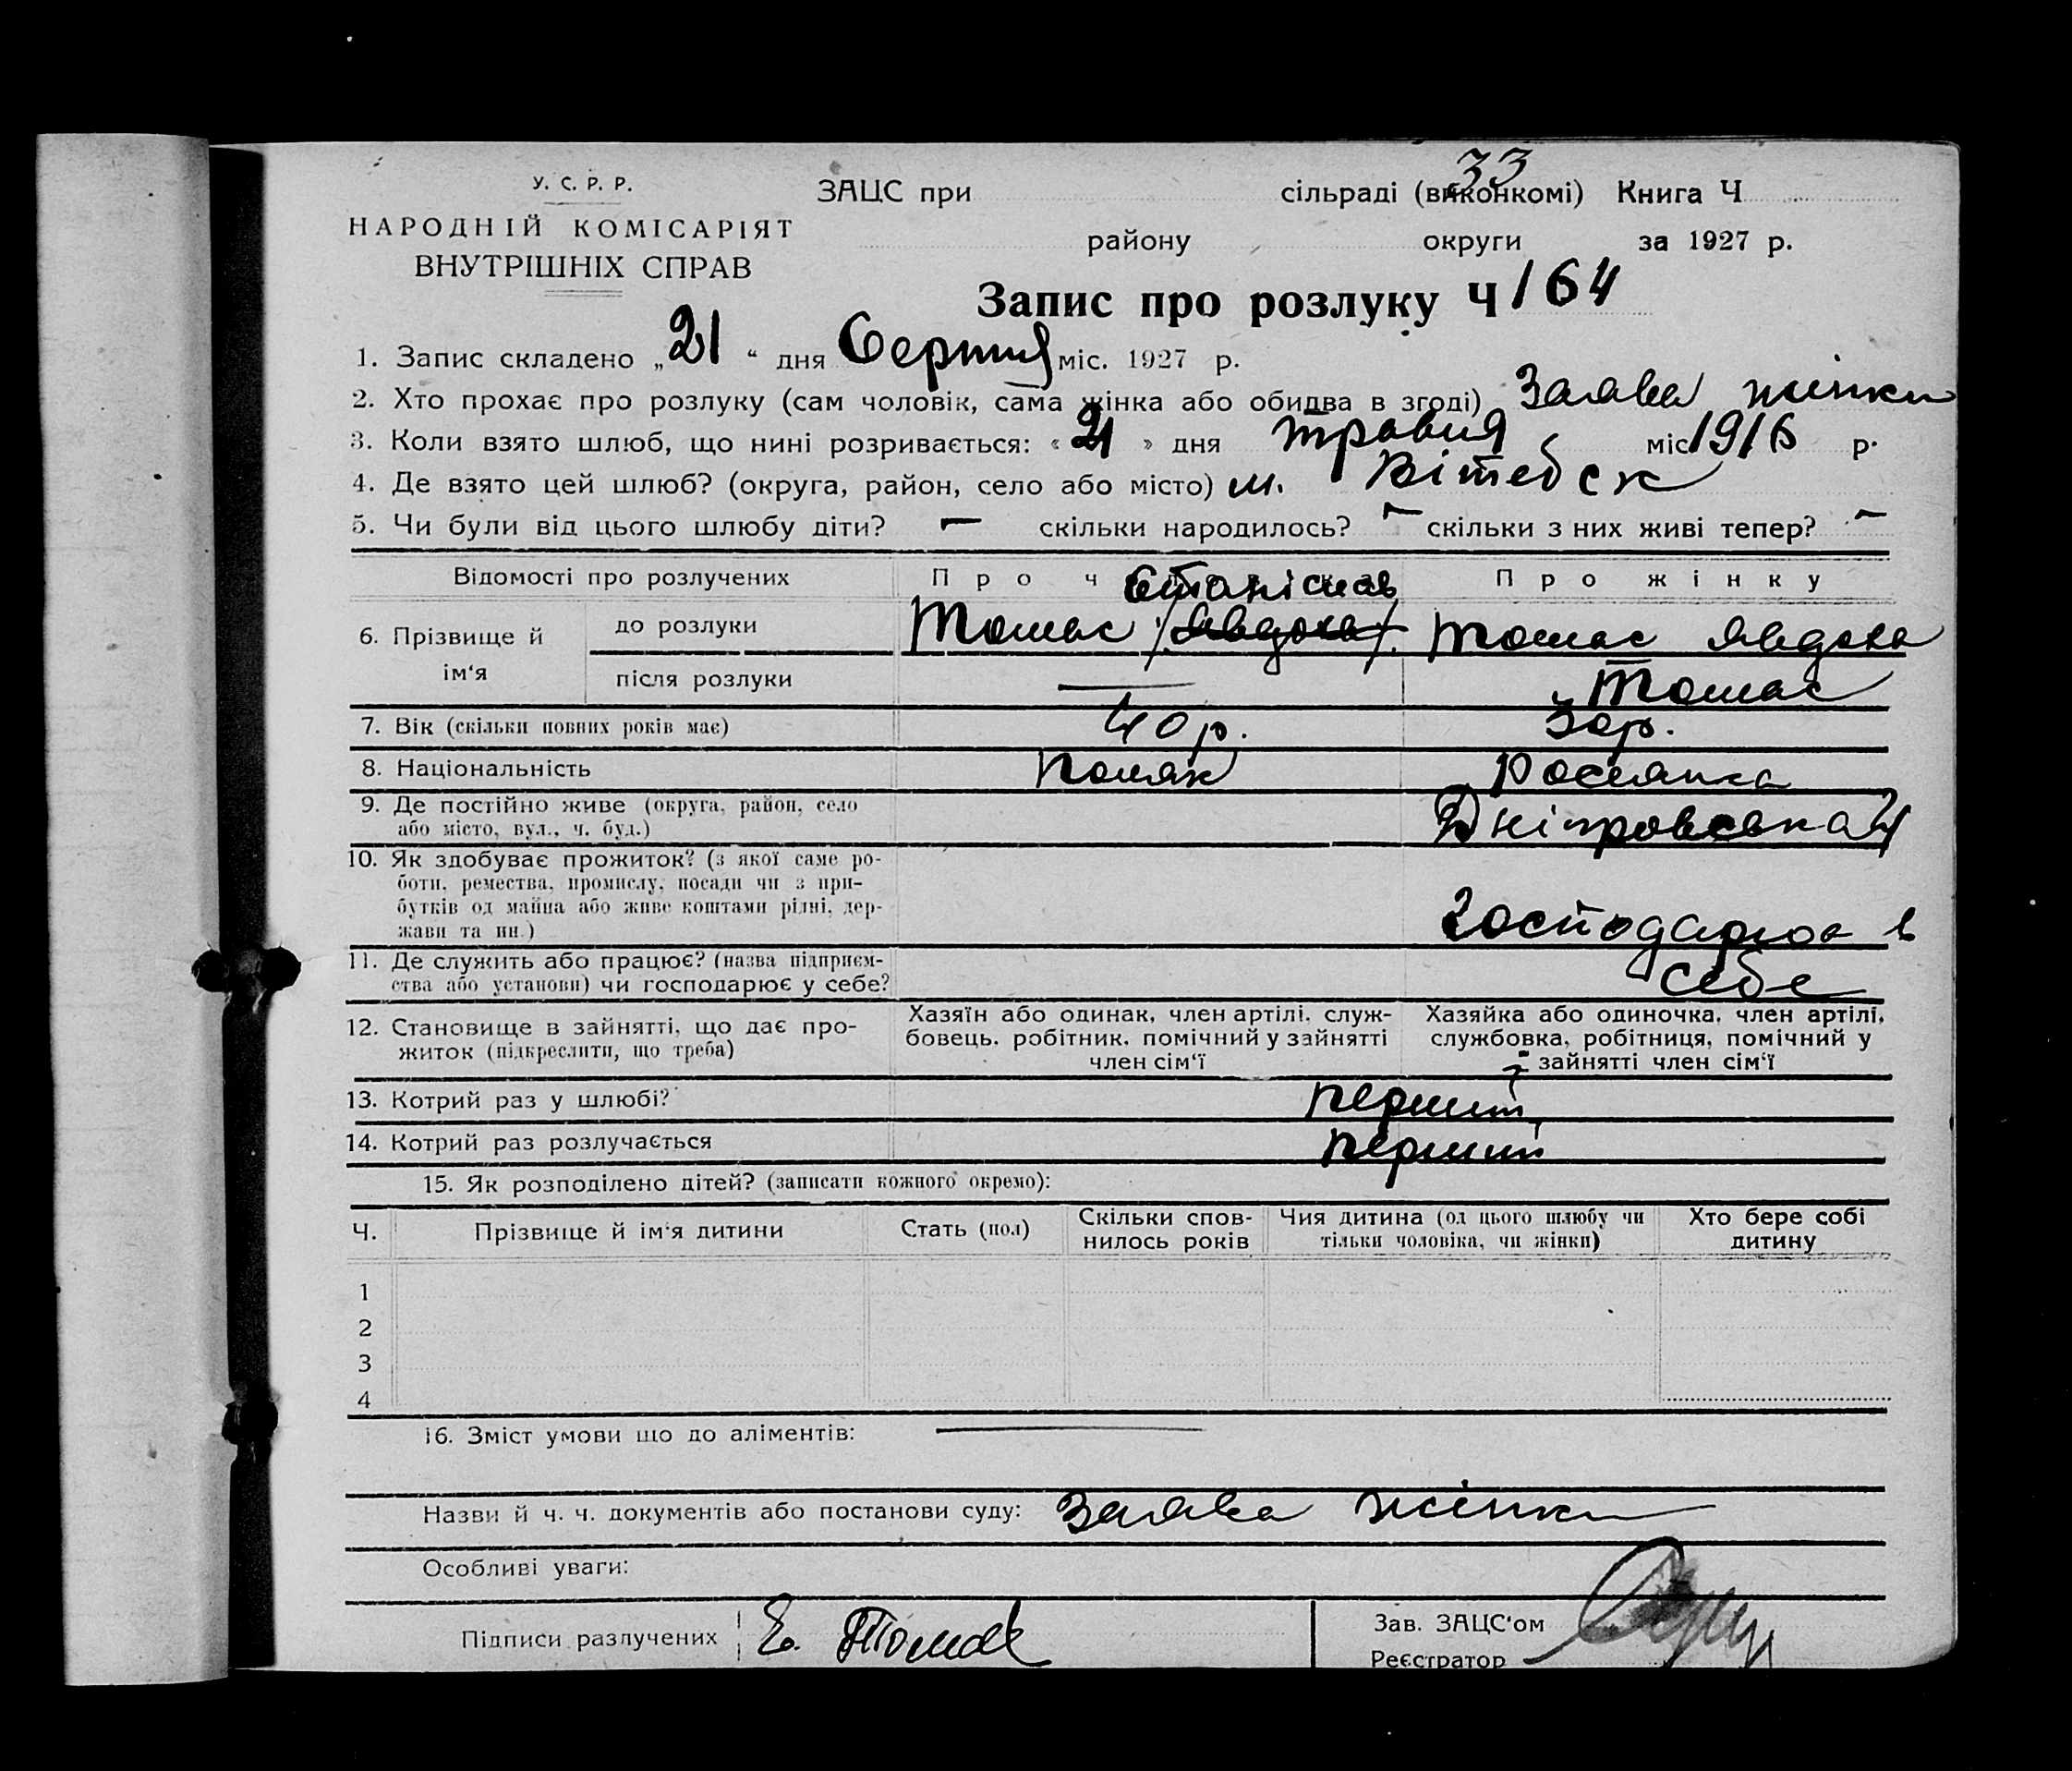 33
У. С. Р. Р.
НАРОДНІЙ КОМІСАРІЯТ
ВНУТРІШНІХ СПРАВ
ЗАЦС при сільраді (виконкомі) Книга Ч
району округи за 1927 р.
Запис про розлуку Ч 164
1. Запис складено „21“ дня Серпня міс. 1927 р.
2. Хто прохає про розлуку (сам чоловік, сама жінка або обидва в згоді) Заява жінки
3. Коли взято шлюб, що нині розривається: «21» дня травня міс 1916 р.
4. Де взято цей шлюб? (округа, район, село або місто) м. Вітебск
5. Чи були від цього шлюбу діти? — скільки народилось? — скільки з них живі тепер? —
Відомості про розлучених Про ч Про жінку
Станіслав
6. Прізвище й ім‘я до розлуки Томас (Явдоха) Томас Явдоха
після розлуки — Томас
7. Вік (скільки повних років має) 40 р. 30 р.
8. Національність Поляк Росіянка
9. Де постійно живе (округа, район, село
або місто, вул., ч. буд.) Дніпровська
10. Як здобуває прожиток? (з якої саме ро-
боти, ремества, промислу, посади чи з при-
бутків од майна або живе коштами рідні, дер-
жави та ин.) Господарює в
11. Де служить або працює? (назва підприєм-
ства або установи) чи господарює у себе? себе
12. Становище в зайнятті, що дає про-
житок (підкреслити, що треба)
Хазяїн або одинак, член артілі, служ-
бовець, робітник, помічний у зайнятті
член сім‘ї
Хазяйка або одиночка, член артілі,
службовка, робітниця, помічний у
зайнятті член сім‘ї
13. Котрий раз у шлюбі? перший
14. Котрий раз розлучається перший
15. Як розподілено дітей? (записати кожного окремо):
Ч. Прізвище й ім‘я дитини Стать (пол) Скільки спов-
нилось років Чия дитина (од цього шлюбу чи
тільки чоловіка, чи жінки) Хто бере собі
дитину
1
2
3
4
16. Зміст умови що до аліментів: —
Назви й ч. ч. документів або постанови суду: Заява жінки
Особливі уваги:
Підписи разлучених Е. Томас
Зав. ЗАЦС‘ом
Реєстратор